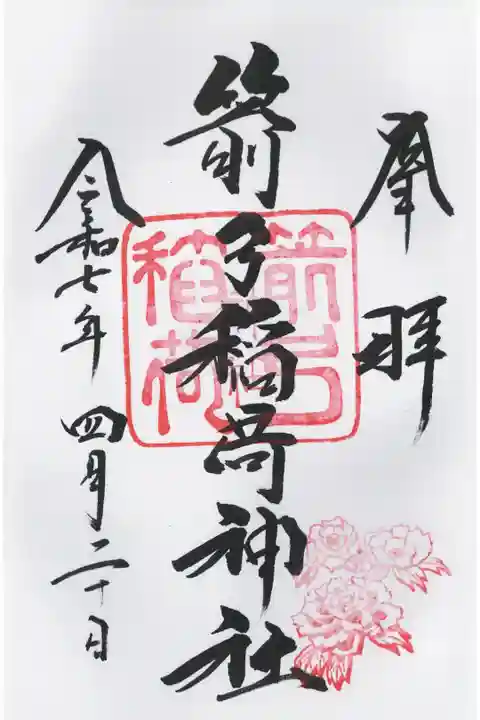 奉拝
箭弓稲荷神社
箭弓稲荷
令和七年 四月二十日